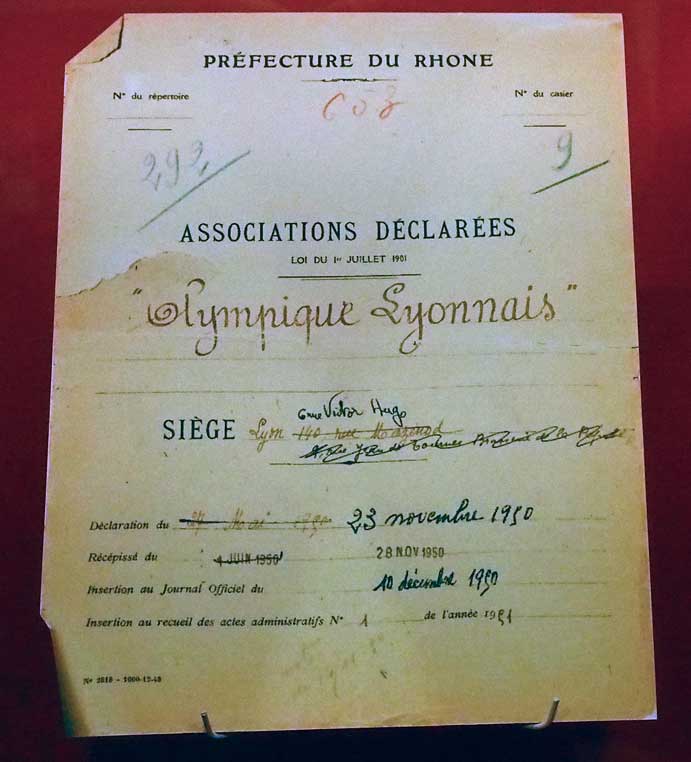 PRÉFECTURE DU RHONE
N° du répertoire
N° du casier
658
292
9
ASSOCIATIONS DÉCLARÉES
LOI DU 1er JUILLET 1901
"Olympique Lyonnais"
6 rue Victor Hugo
SIÈGE Lyon 140 rue Mazenod
Déclaration du 27 Mai 1950 23 novembre 1950
Récépissé du 4 JUIN 1950 28 NOV 1950
Insertion au Journal Officiel du 10 décembre 1950
Insertion au recueil des actes administratifs N° 1 de l'année 1951